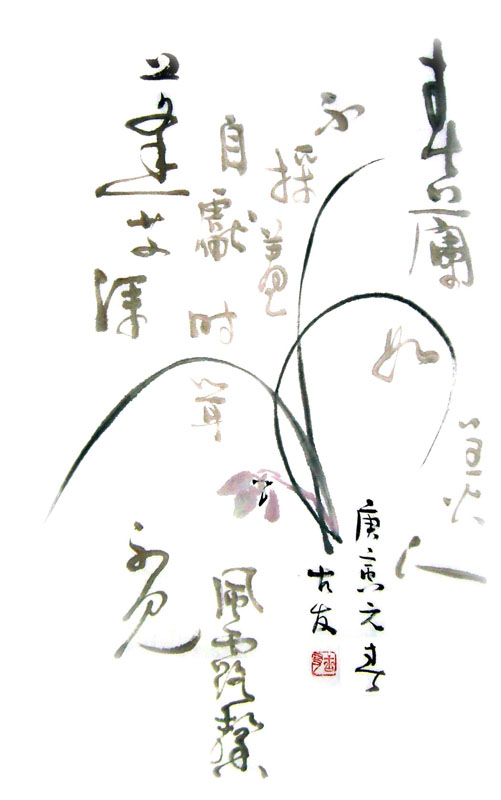 春蘭如美人
不採羞
自獻
时聞
風露馨
蓬艾深
不見
庚寅元春
古友